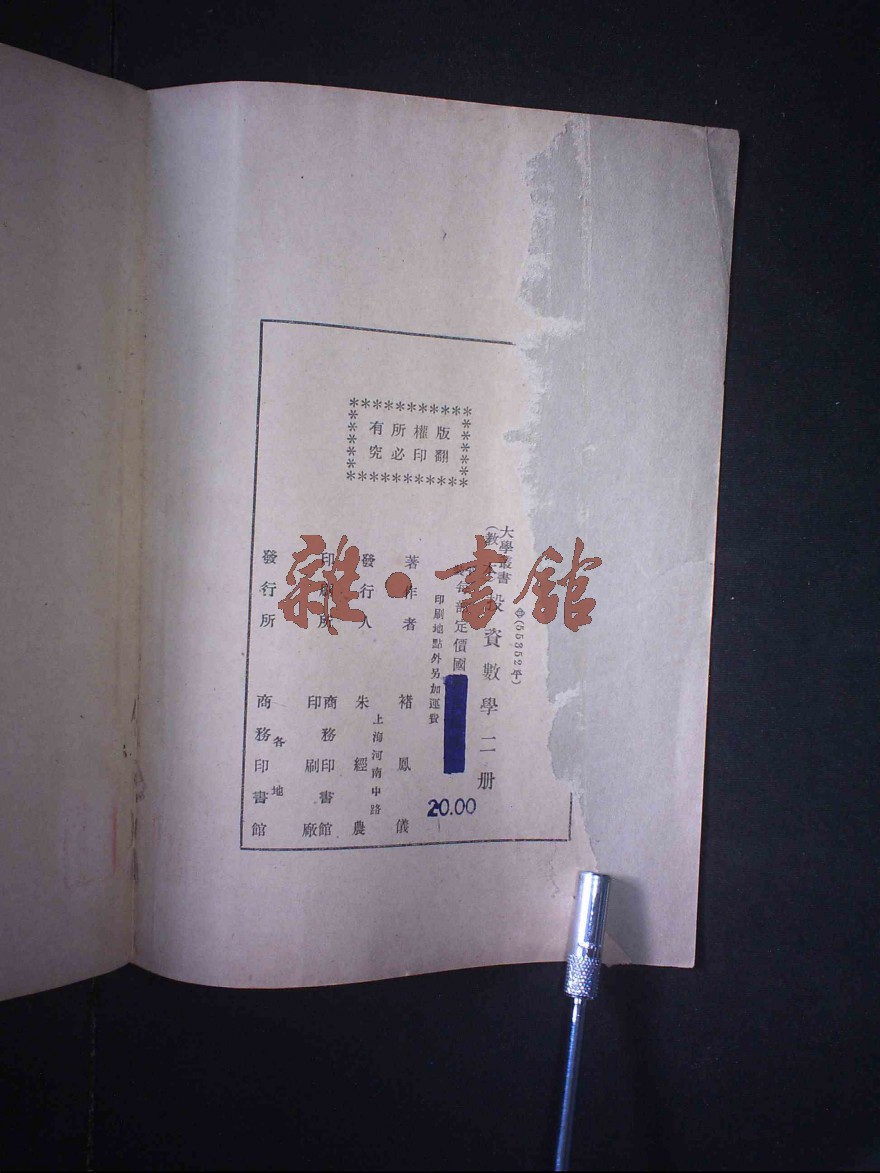 中(55352平)
大學叢書
(教本
投資數學二册
每部定價國
20.00
印刷地點外另加運費
版權所有
翻印必究
著作者 褚鳳儀
發行人 朱經農
上海河南中路
印刷所 商務印書館
印刷廠
發行所 商務印書館
各地
雜·書館